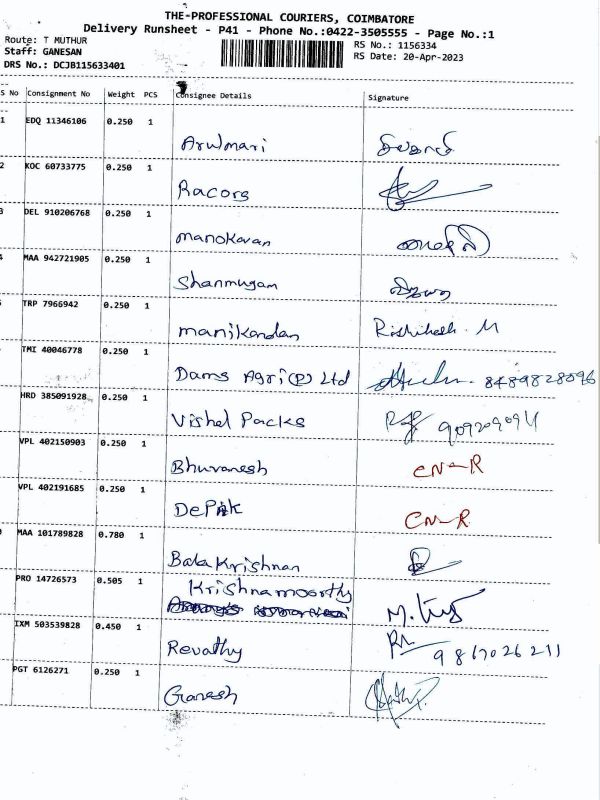 THE-PROFESSIONAL COURIERS, COIMBATORE
Delivery Runsheet - P41 - Phone No.:0422-3505555 - Page No.:1
Route: T MUTHUR
RS No.: 1156334
Staff: GANESAN
RS Date: 20-Apr-2023
DRS No.: DCJB115633401
S No Consignment No Weight PCS Consignee Details Signature
1 EDQ 11346106 0.250 1
Arulmari
2 KOC 60733775 0.250 1
Racors
3 DEL 910206768 0.250 1
manokaran
4 MAA 942721905 0.250 1
Shanmugam
TRP 7966942 0.250 1
manikandan Rishikesh. M
TMI 40046778 0.250 1
Dams Agri (P) Ltd 8489828096
HRD 385091928 0.250 1
Vishal Packs
VPL 402150903 0.250 1
Bhuvanesh CN-R
VPL 402191685 0.250 1
Depak CN-R
MAA 101789828 0.780 1
Bala Krishnan
PRO 14726573 0.505 1
Krishnamoorthy
IXM 503539828 0.450 1
Revathy
PGT 6126271 0.250 1
Ganesh